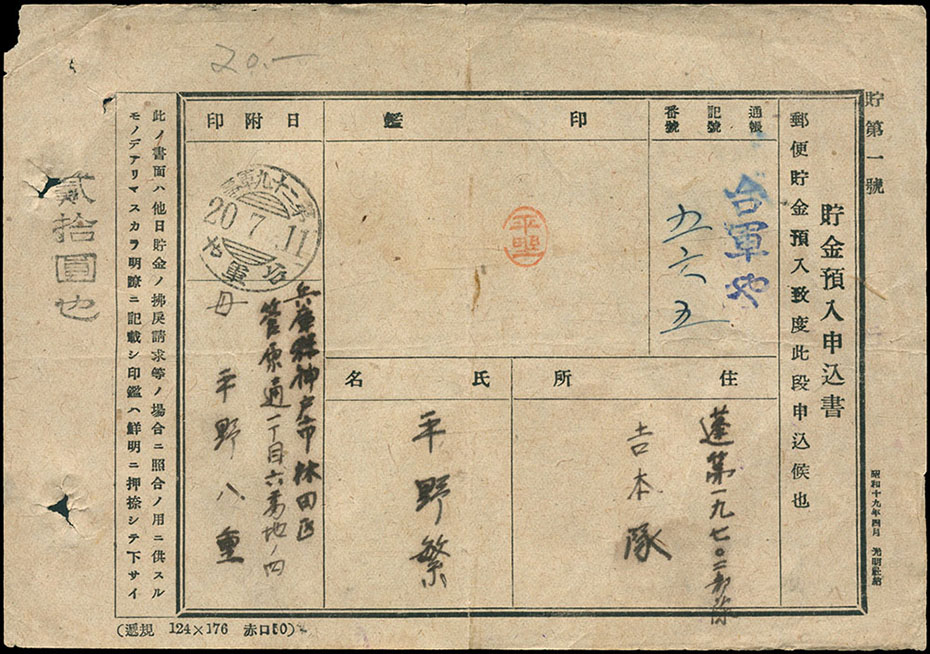 20.—
貯第一號
貯金預入申込書
郵便貯金預入致度此段申込候也
昭和十九年四月
通帳
記號
番號
台軍や
五六五
印鑑
平野
日附印
20.7.11
住所
蓬第一九七〇二部隊
吉本隊
氏名
平野繁
兵庫縣神戸市林田区
菅原通一丁目六番地ノ四
母 平野八重
此ノ書面ハ他日貯金ノ拂戻請求等ノ場合ニ照合ノ用ニ供スル
モノデアリマスカラ明瞭ニ記載シ印鑑ハ鮮明ニ押捺シテ下サイ
貳拾圓也
(遞規 124×176 赤口50)